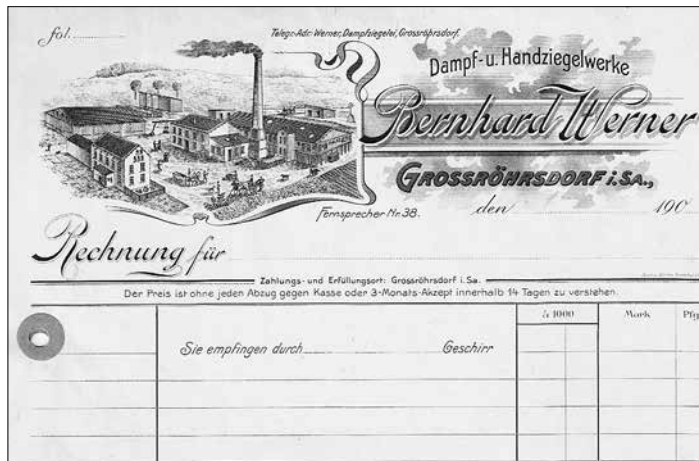 fol.
Telegr.-Adr: Werner, Dampfziegelei, Grossröhrsdorf.
Dampf- u. Handziegelwerke
Bernhard Werner
GROSSRÖHRSDORF i. SA.,
Fernsprecher Nr. 38.
den 190
Rechnung für
Zahlungs- und Erfüllungsort: Grossröhrsdorf i. Sa.
Der Preis ist ohne jeden Abzug gegen Kasse oder 3-Monats-Akzept innerhalb 14 Tagen zu verstehen.
à 1000 Mark Pfg
Sie empfingen durch Geschirr